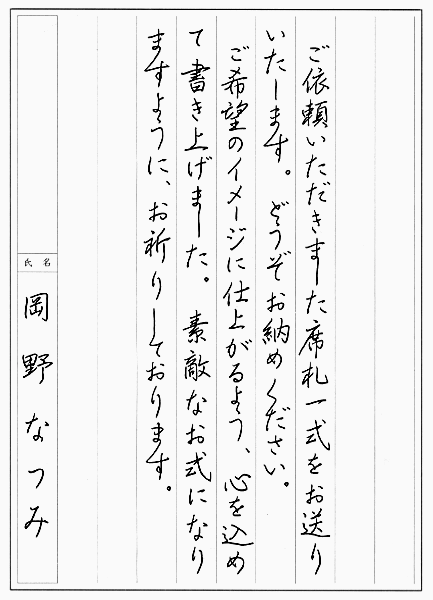 ご依頼いただきました席札一式をお送り
いたします。どうぞお納めください。
ご希望のイメージに仕上がるよう、心を込め
て書き上げました。素敵なお式になり
ますように、お祈りしております。
氏名
岡野なつみ